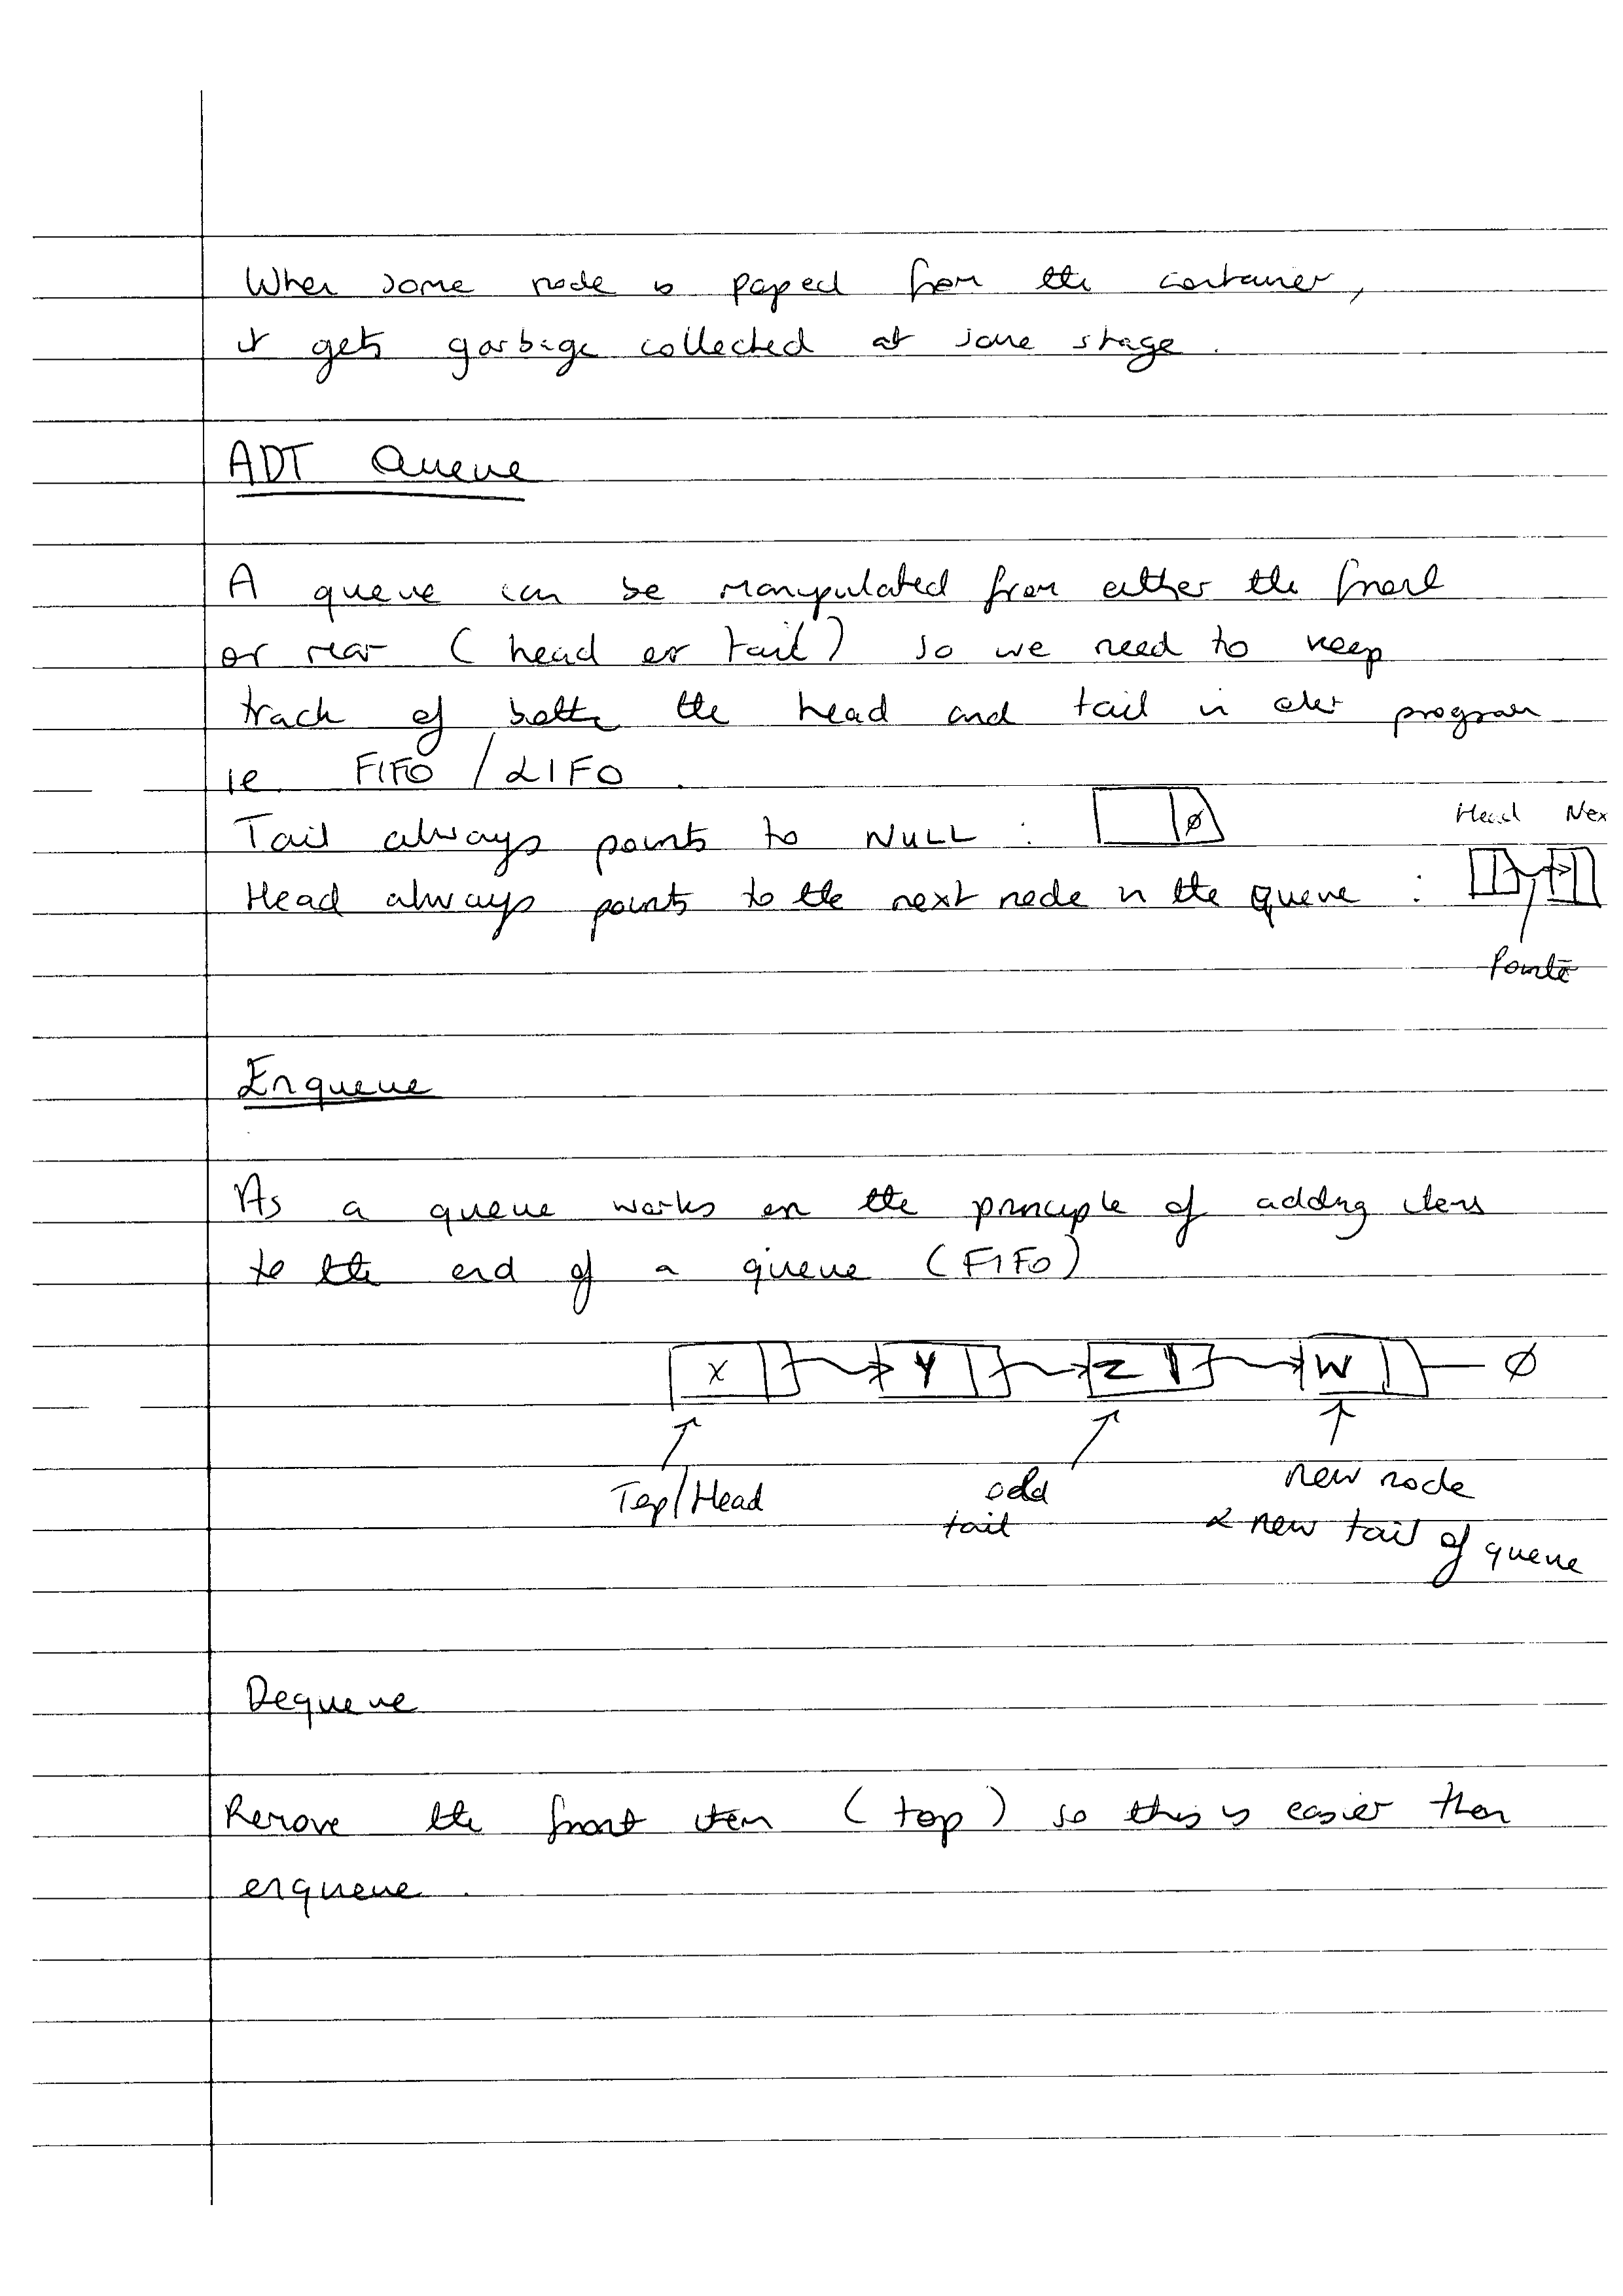 When some node is poped from the container,
it gets garbage collected at some stage.
ADT Queue
A queue can be manipulated from either the front
or rear (head or tail) so we need to keep
track of both the head and tail in our program
ie. FIFO / LIFO.
Tail always points to NULL : ∅
Head Nex
Head always points to the next node in the queue :
Pointe
Enqueue
As a queue works on the principle of adding items
to the end of a queue (FIFO)
X Y Z W ∅
Top/Head old new node
tail & new tail of queue
Dequeue
Remove the front item (top) so this is easier than
enqueue.